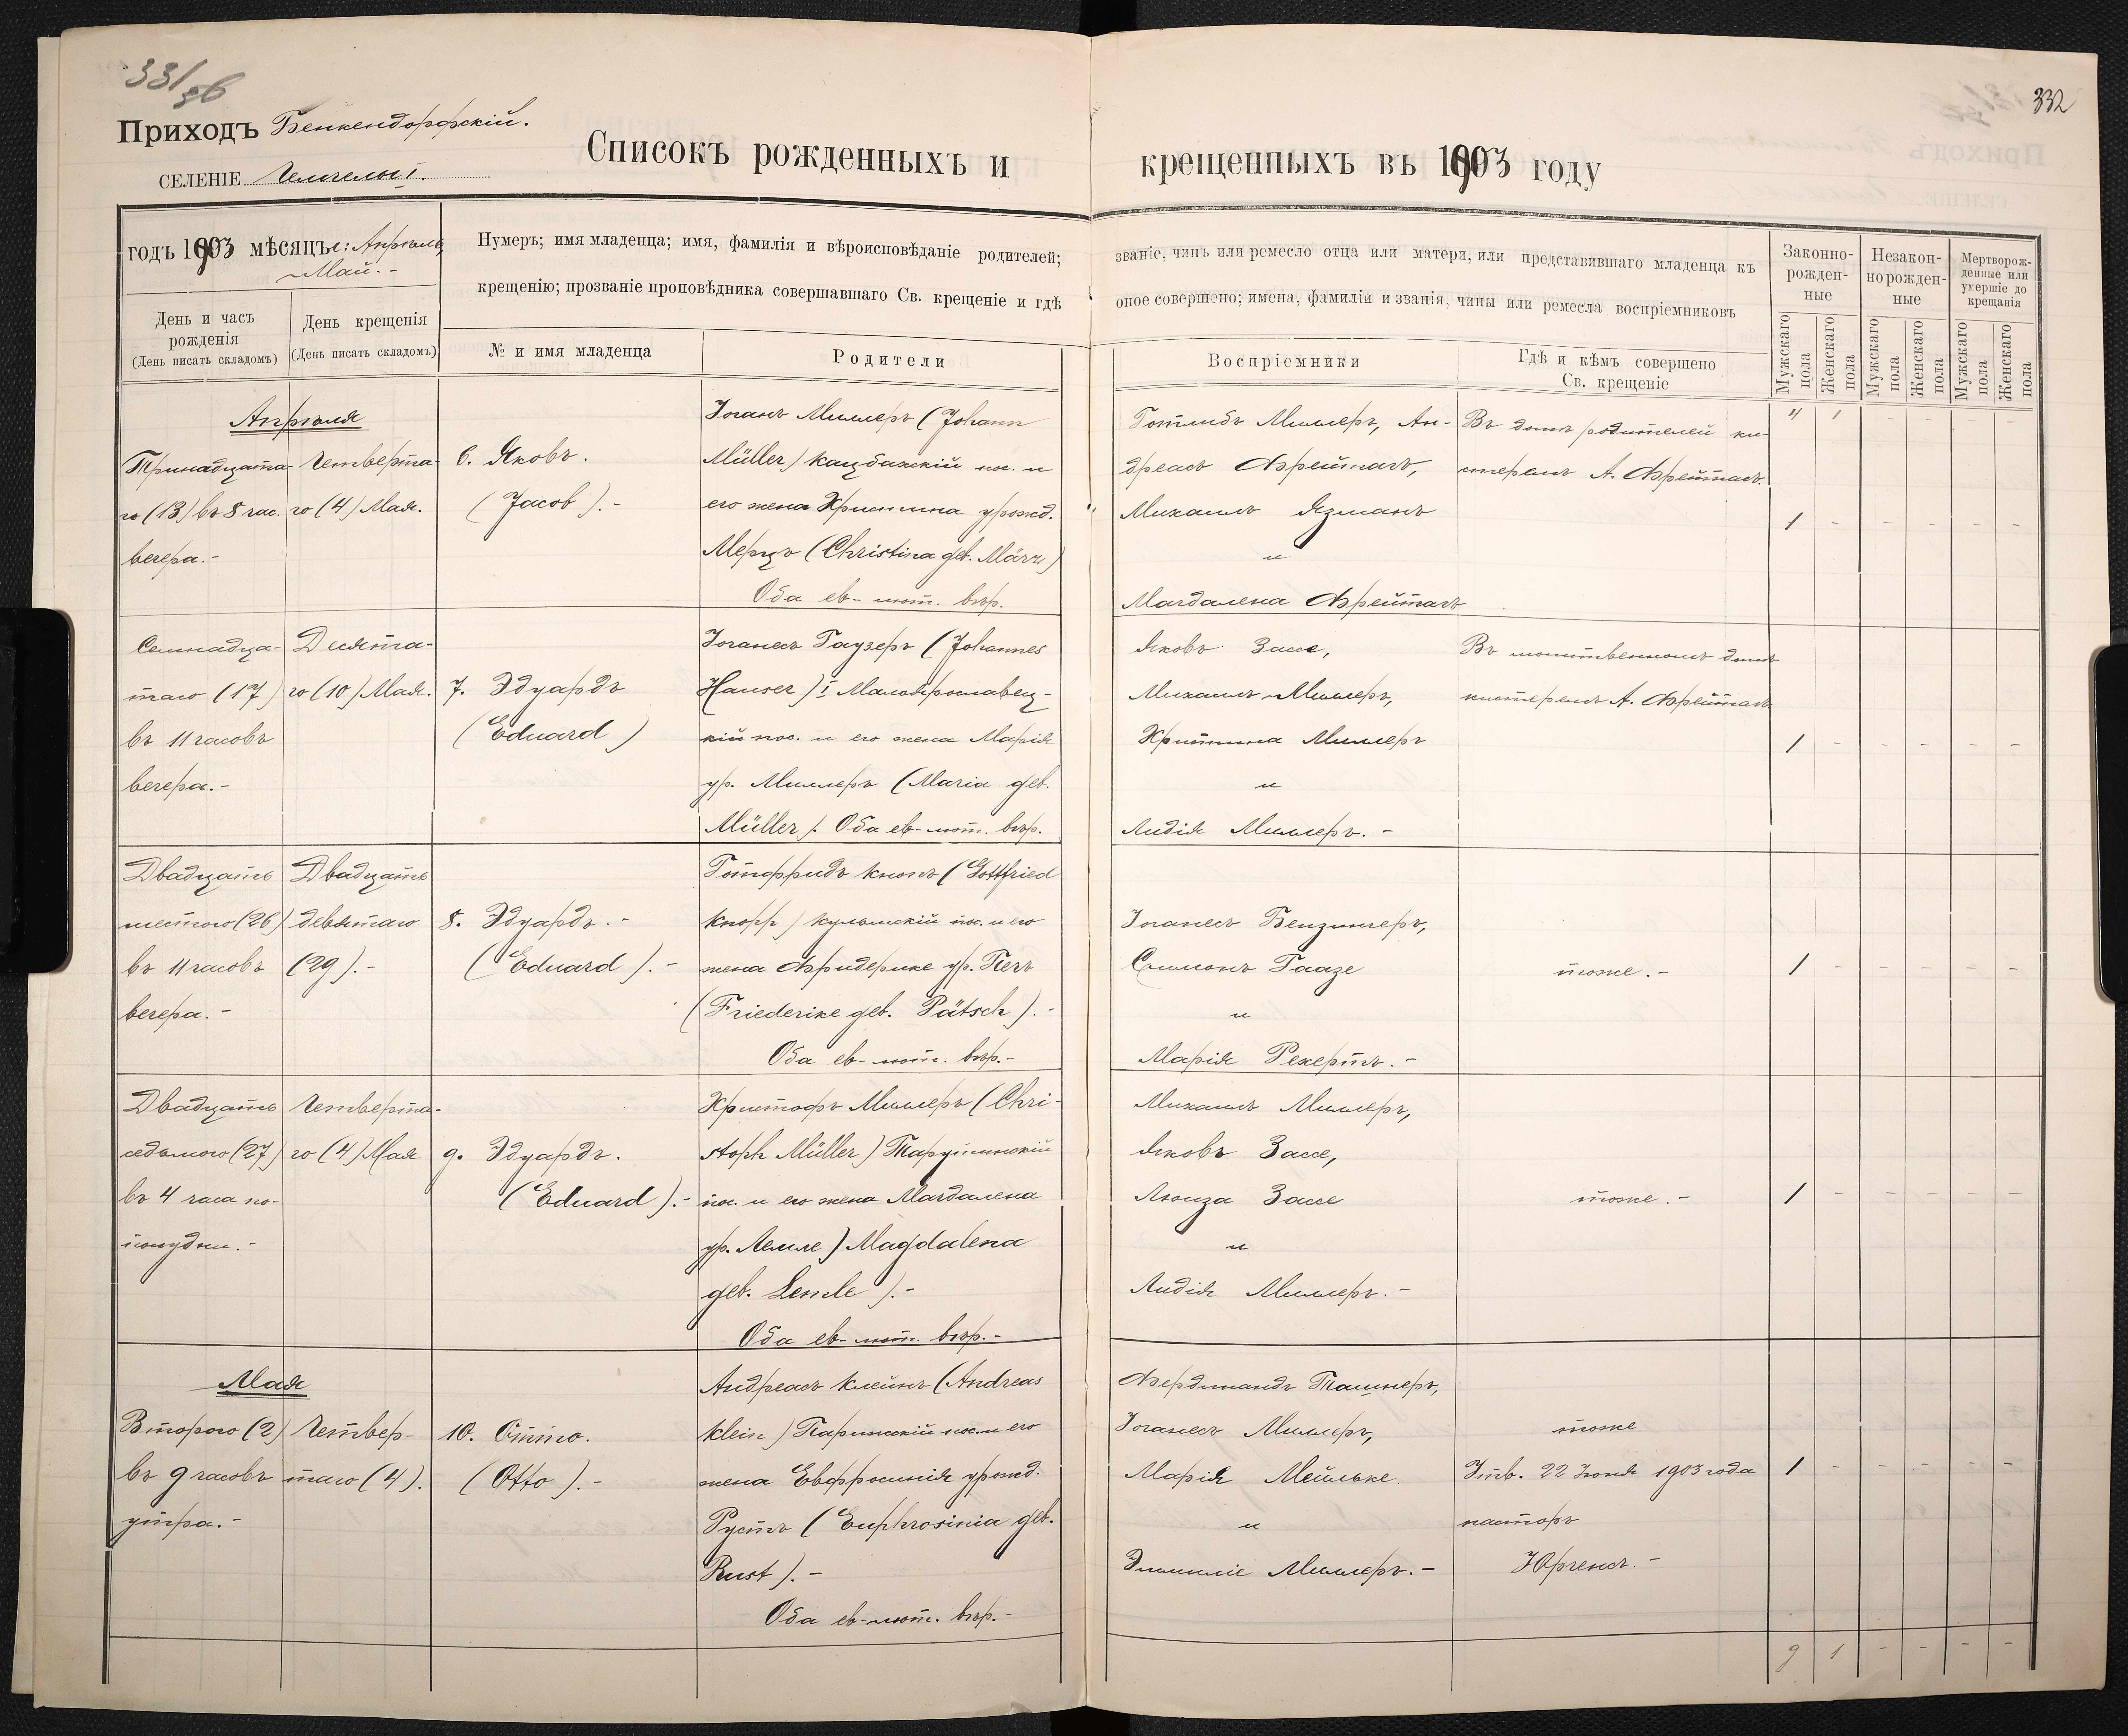 33/36
332
Приходъ Бенкендорфскій.
СЕЛЕНІЕ Чемчелы I.
Списокъ рожденныхъ и крещенныхъ въ 1903 году
годъ 1903 мѣсяцъ: Апрѣль,
Май.-
Нумеръ; имя младенца; имя, фамилія и вѣроисповѣданіе родителей; званіе, чинъ или ремесло отца или матери, или представившаго младенца къ
крещенію; прозваніе проповѣдника совершавшаго Св. крещеніе и гдѣ оное совершено; имена, фамиліи и званія, чины или ремесла воспріемниковъ
Законно-
рожден-
ные
Незакон-
норожден-
ные
Мертворож-
денные или
умершіе до
крещанія
День и часъ
рожденія
(День писать складомъ)
День крещенія
(День писать складомъ)
№ и имя младенца
Родители
Воспріемники
Гдѣ и кѣмъ совершено
Св. крещеніе
Мужскаго
пола
Женскаго
пола
Мужскаго
пола
Женскаго
пола
Мужскаго
пола
Женскаго
пола
4 1 - - - -
Апрѣля
Тринадцата-
го (13) въ 8 час.
вечера.-
Четверта-
го (4) Мая.
6. Яковъ.
(Jacob).-
Іоганъ Миллеръ (Johann
Müller) Кацбахскій пос. и
его жена Христина урожд.
Мерцъ (Christina geb. März)
Оба ев-лют. вѣр.
Готлибъ Миллеръ, Ан-
дреасъ Фрейтагъ,
Михаилъ Язманъ
и
Магдалена Фрейтагъ
Въ домѣ родителей ки-
стеромъ А. Фрейтагъ.
1 - - - - -
Семнадца-
таго (17)
въ 11 часовъ
вечера.-
Десята-
го (10) Мая.
7. Эдуардъ
(Eduard)
Іоганесъ Гаузеръ (Johannes
Hauser) I Малоярославец-
кій пос. и его жена Марія
ур. Миллеръ (Maria geb.
Müller). Оба ев-лют. вѣр.
Яковъ Зассе,
Михаилъ Миллеръ,
Христина Миллеръ
и
Лидія Миллеръ.-
Въ молитвенномъ домѣ
кистеромъ А. Фрейтагъ
1 - - - - -
Двадцать
шестого (26)
въ 11 часовъ
вечера.-
Двадцать
девятаго
(29).-
8. Эдуардъ.-
(Eduard).-
Готфридъ Кнопъ (Gottfried
Knopp) Кульмскій пос. и его
жена Фридерике ур. Печъ
(Friederike geb. Pätsch).-
Оба ев-лют. вѣр.-
Іоганесъ Бензингеръ,
Симонъ Гаазе
и
Марія Рехертъ.-
тоже.-
1 - - - - -
Двадцать
седьмого (27)
въ 4 часа по-
полудни.-
Четверта-
го (4) Мая
9. Эдуардъ.
(Eduard).-
Христофъ Миллеръ (Chri-
stoph Müller) Тарутинскій
пос. и его жена Магдалена
ур. Лемле) Magdalena
geb. Lemle).-
Оба ев-лют. вѣр.-
Михаилъ Миллеръ,
Яковъ Зассе,
Луиза Зассе
и
Лидія Миллеръ.-
тоже.-
1 - - - - -
Мая
Второго (2)
въ 9 часовъ
утра.-
Четвер-
таго (4).
10. Отто.
(Otto).-
Андреасъ Клейнъ (Andreas
Klein) Парижскій пос. и его
жена Евфросинія урожд.
Рустъ (Euphrosinia geb.
Rust).-
Оба ев-лют. вѣр.-
Фердинандъ Ташнеръ,
Іоганесъ Миллеръ,
Марія Мейльке
и
Эмиліе Миллеръ.-
тоже
Утв. 22 Іюня 1903 года
пасторъ
Юргенсъ.-
1 - - - - -
9 1 - - - -